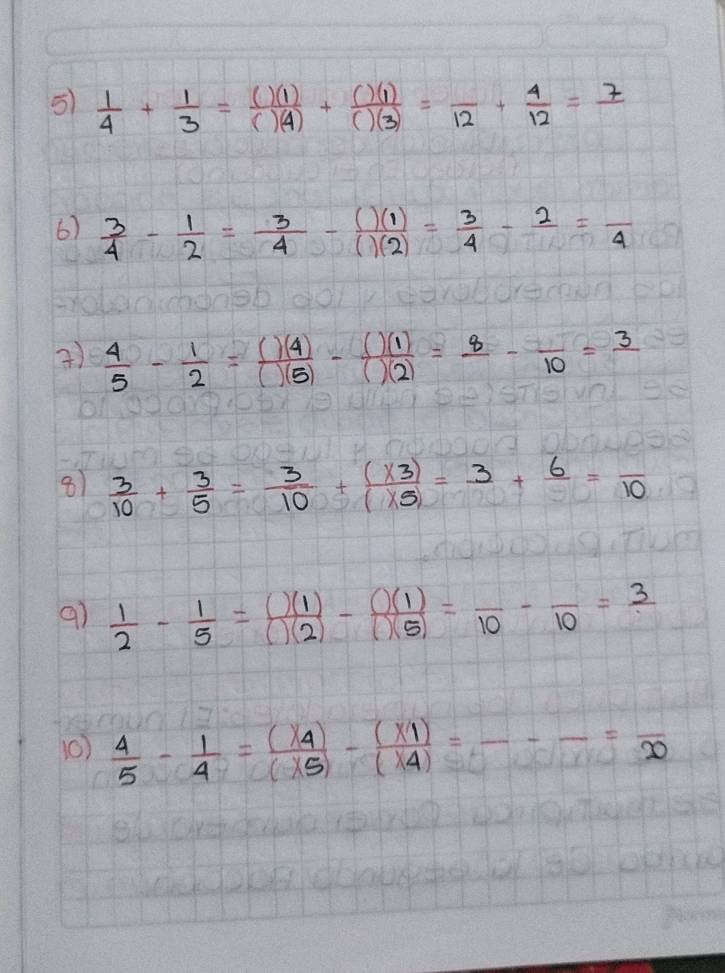 5) 1/4 + 1/3 = ( )(1)/( )(4) + ( )(1)/( )(3) = /12 + 4/12 = 7/
6) 3/4 - 1/2 = 3/4 - ( )(1)/( )(2) = 3/4 - 2/ = /4
7) 4/5 - 1/2 = ( )(4)/( )(5) - ( )(1)/( )(2) = 8/ - /10 = 3/
8) 3/10 + 3/5 = 3/10 + ( )(3)/( )(5) = 3/ + 6/ = /10
9) 1/2 - 1/5 = ( )(1)/( )(2) - ( )(1)/( )(5) = /10 - /10 = 3/
10) 4/5 - 1/4 = ( )(4)/( )(5) - ( )(1)/( )(4) = / - / = /20